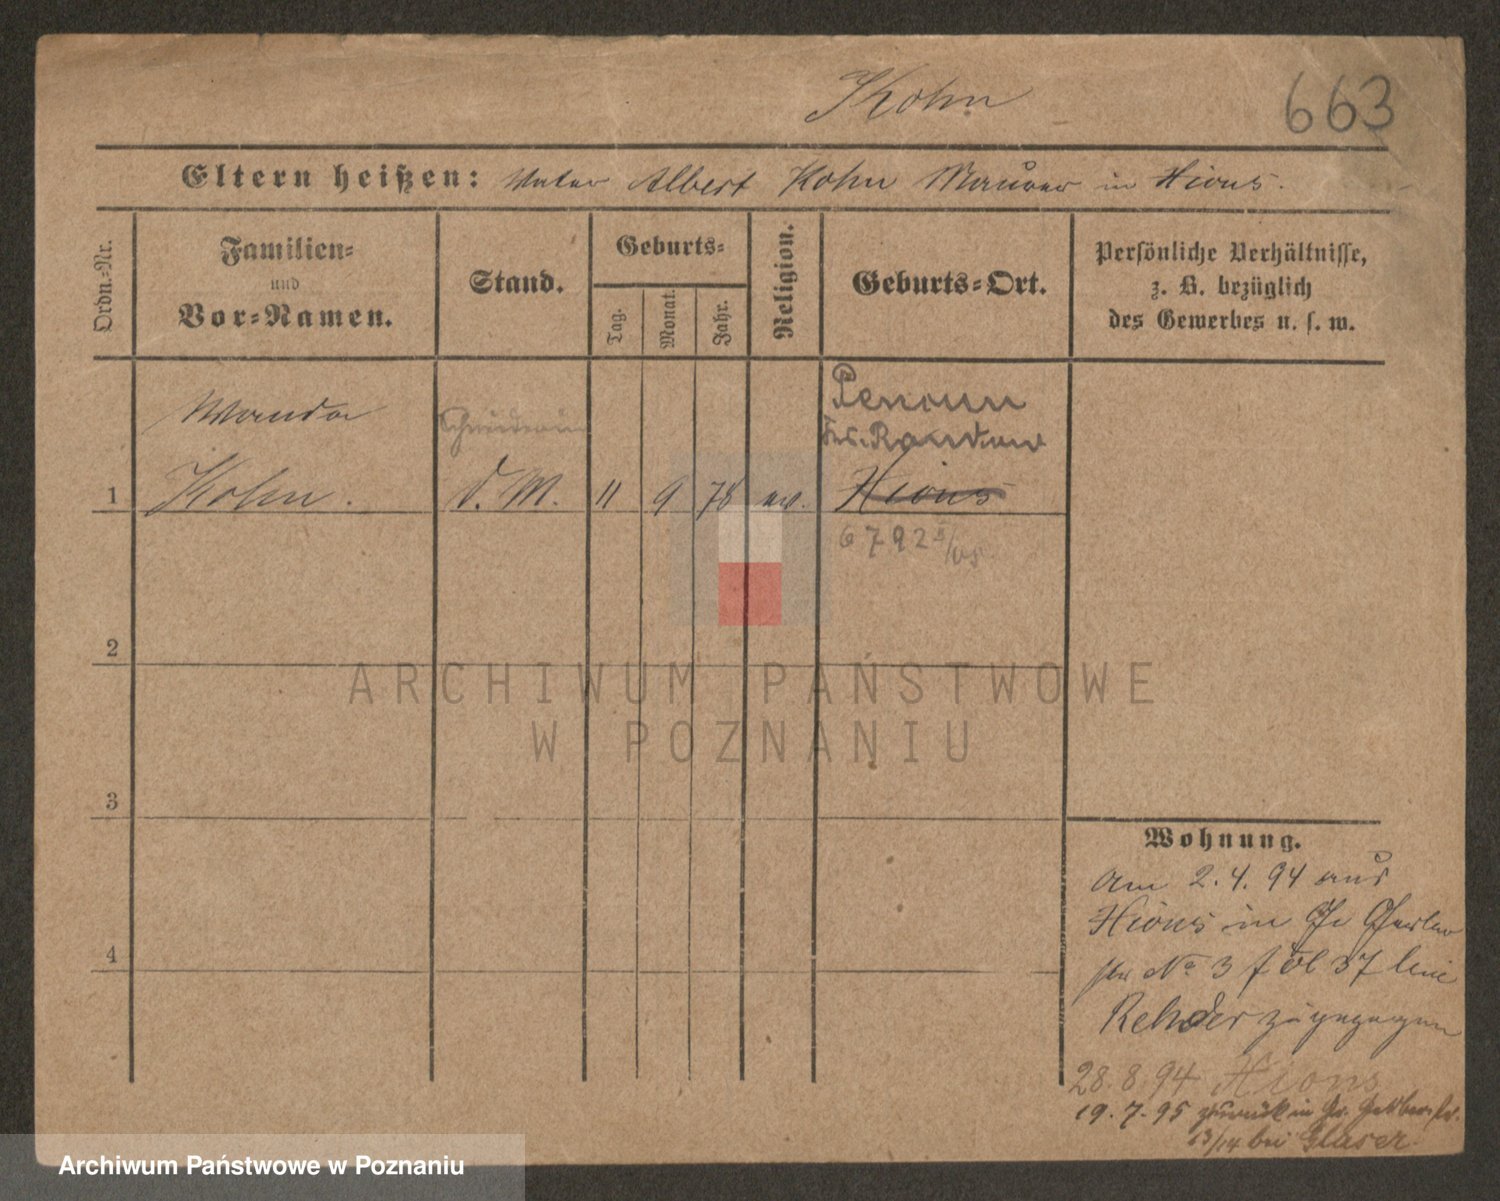 Kohn
663
Eltern heißen: Vater Albert Kohn Maurer in Xions.
Ordn.-Nr.
Familien-
und
Vor-Namen.
Stand.
Geburts-
Tag.
Monat.
Jahr.
Religion.
Geburts-Ort.
Persönliche Verhältnisse,
z. B. bezüglich
des Gewerbes u. s. w.
Wanda
Schneiderin
Pencun
Krs. Randow
1 Kohn. d. M. 11 9 78 ev. Xions
6792
2
ARCHIWUM PAŃSTWOWE
W POZNANIU
3
4
Wohnung.
Am 2. 4. 94 aus
Xions in Gr Gerber
str No 3 bei
Rehder zugezogen
28. 8. 94 Xions
19. 7. 95 zurück in Gr. Gerberstr.
13/14 bei Glaser
Archiwum Państwowe w Poznaniu